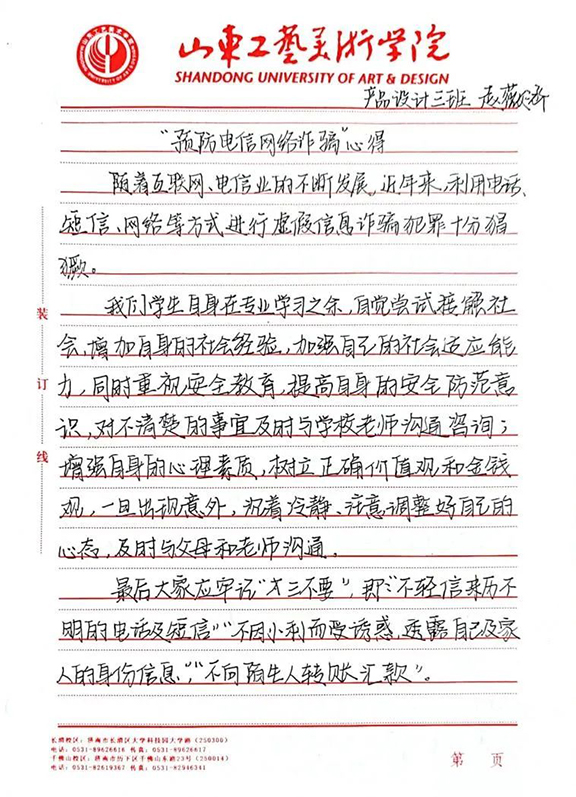 山东工艺美术学院
SHANDONG UNIVERSITY OF ART & DESIGN
产品设计三班
"预防电信网络诈骗"心得
随着互联网、电信业的不断发展,近年来,利用电话、
短信、网络等方式进行虚假信息诈骗犯罪十分猖
獗。
我们学生自身在专业学习之余,自觉尝试接触社
会,增加自身的社会经验,加强自己的社会适应能
力,同时重视安全教育,提高自身的安全防范意
识,对不清楚的事宜及时与学校老师沟通咨询;
增强自身的心理素质,树立正确价值观和金钱
观,一旦出现意外,沉着冷静、注意调整好自己的
心态,及时与父母和老师沟通.
最后大家应牢记"三不要",即:"不轻信来历不
明的电话及短信""不因小利而受诱惑,透露自己及家
人的身份信息","不向陌生人转账汇款"。
装
订
线
长清校区:济南市长清区大学科技园大学路(250300)
电话:0531-89626616 传真:0531-89626617
千佛山校区:济南市历下区千佛山东路23号(250014)
电话:0531-82619367 传真:0531-82946341
第 页